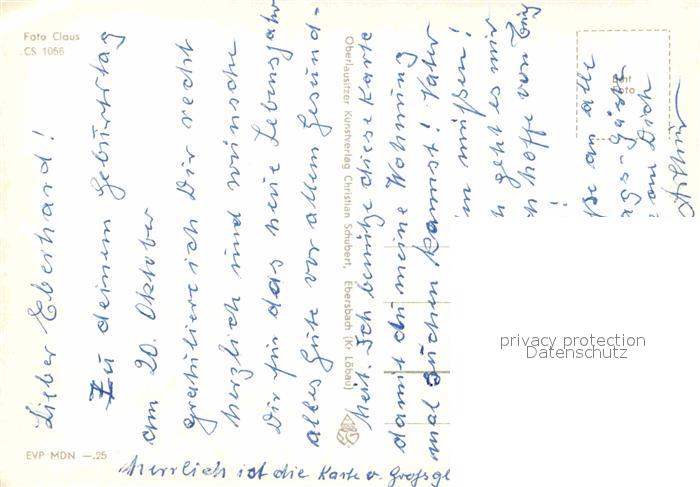 Foto Claus
CS 1056
Lieber Eberhard!
Zu deinem Geburtstag
am 20. Oktober
gratuliere ich Dir recht
herzlich und wünsche
Dir für das neue Lebensjahr
alles Gute vor allem Gesund-
heit. Ich benütze diese Karte
damit du meine Wohnung
mal suchen kannst! Vater
müßen!
geht es mir
hoffe von
an alle
am Dich
Oberlausitzer Kunstverlag Christian Schubert, Ebersbach (Kr Löbau)
Echt
Foto
EVP MDN —.25
herrlich ist die Karte v.
privacy protection
Datenschutz